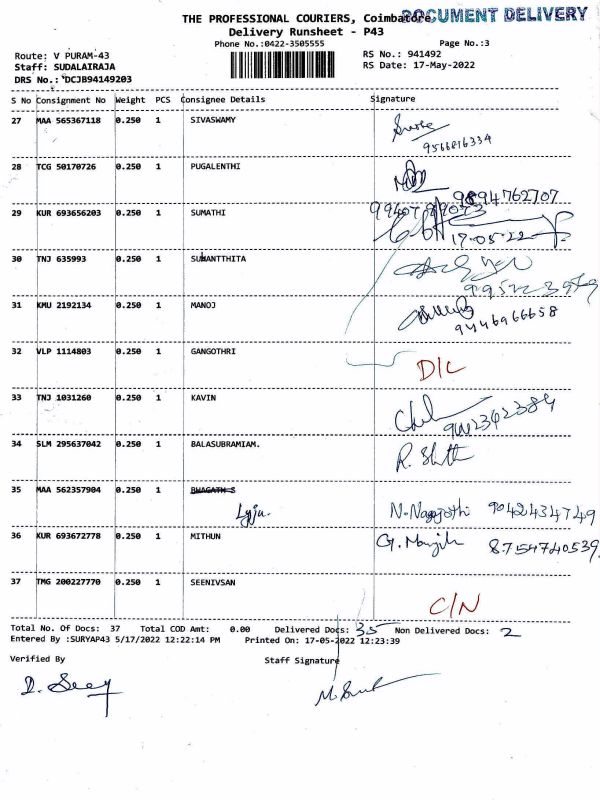 THE PROFESSIONAL COURIERS, Coimbatore
DOCUMENT DELIVERY
Delivery Runsheet - P43
Phone No.:0422-3505555
Page No.:3
Route: V PURAM-43
RS No.: 941492
Staff: SUDALAIRAJA
RS Date: 17-May-2022
DRS No.: DCJB94149203
S No Consignment No Weight PCS Consignee Details Signature
27 MAA 565367118 0.250 1 SIVASWAMY
9566816334
28 TCG 50170726 0.250 1 PUGALENTHI
9894762707
29 KUR 693656203 0.250 1 SUMATHI
17-05-22
30 TNJ 635993 0.250 1 SUHANTTHITA
31 KMU 2192134 0.250 1 MANOJ
9446966658
32 VLP 1114803 0.250 1 GANGOTHRI
D/C
33 TNJ 1031260 0.250 1 KAVIN
34 SLM 295637042 0.250 1 BALASUBRAMIAM.
35 MAA 562357904 0.250 1 BHAGATH S
Lyju. 9042434749
36 KUR 693672778 0.250 1 MITHUN
8754740539
37 TMG 200227770 0.250 1 SEENIVSAN
C/N
Total No. Of Docs: 37 Total COD Amt: 0.00 Delivered Docs: 35 Non Delivered Docs: 2
Entered By :SURYAP43 5/17/2022 12:22:14 PM Printed On: 17-05-2022 12:23:39
Verified By Staff Signature